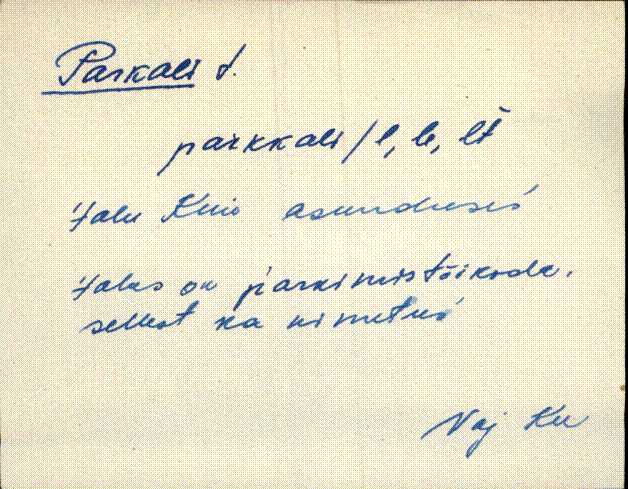 Parkali t.
parkkali / l, le, lt
Talu Kuio asunduses
Talus on parkimistöökoda.
sellest ka nimetus
Vaj Ku